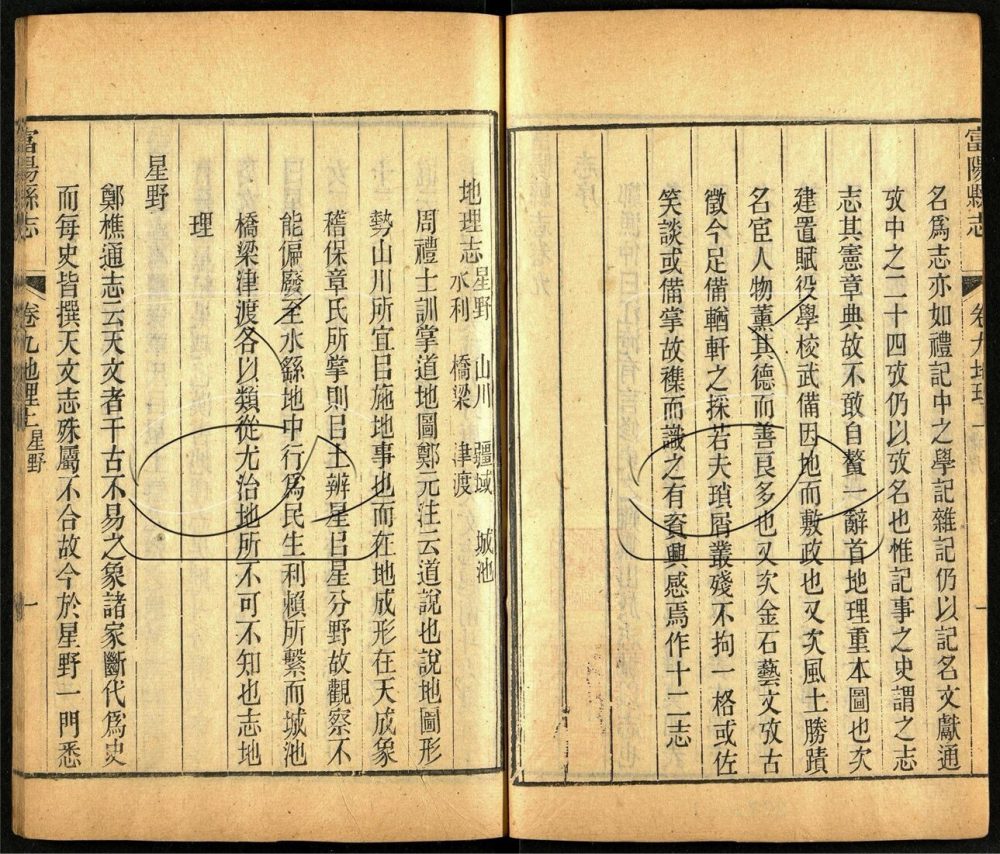 富陽縣志
卷九地理
一
名爲志亦如禮記中之學記雜記仍以記名文獻通
攷中之二十四攷仍以攷名也惟記事之史謂之志
志其憲章典故不敢自鳌一辭首地理重本圖也次
建置賦役學校武備因地而敷政也又次風土勝蹟
名宦人物薰其德而善良多也又次金石藝文攷古
徵今足備輶軒之採若夫瑣屑叢殘不拘一格或佐
笑談或備掌故穕而識之有資興感焉作十二志
地理志 星野 山川 疆域 城池
水利 橋梁 津渡
周禮士訓掌道地圖鄭元注云道說也說地圖形
勢山川所宜㠯施地事也而在地成形在天成象
稽保章氏所掌則㠯土辨星㠯星分野故觀察不
能偏廢至水繇地中行爲民生利賴所繫而城池
橋梁津渡各以類從尤治地所不可不知也志地
理
星野
鄭樵通志云天文者千古不易之象諸家斷代爲史
而每史皆撰天文志殊屬不合故今於星野一門悉
富陽縣志
卷九地理上 星野
一